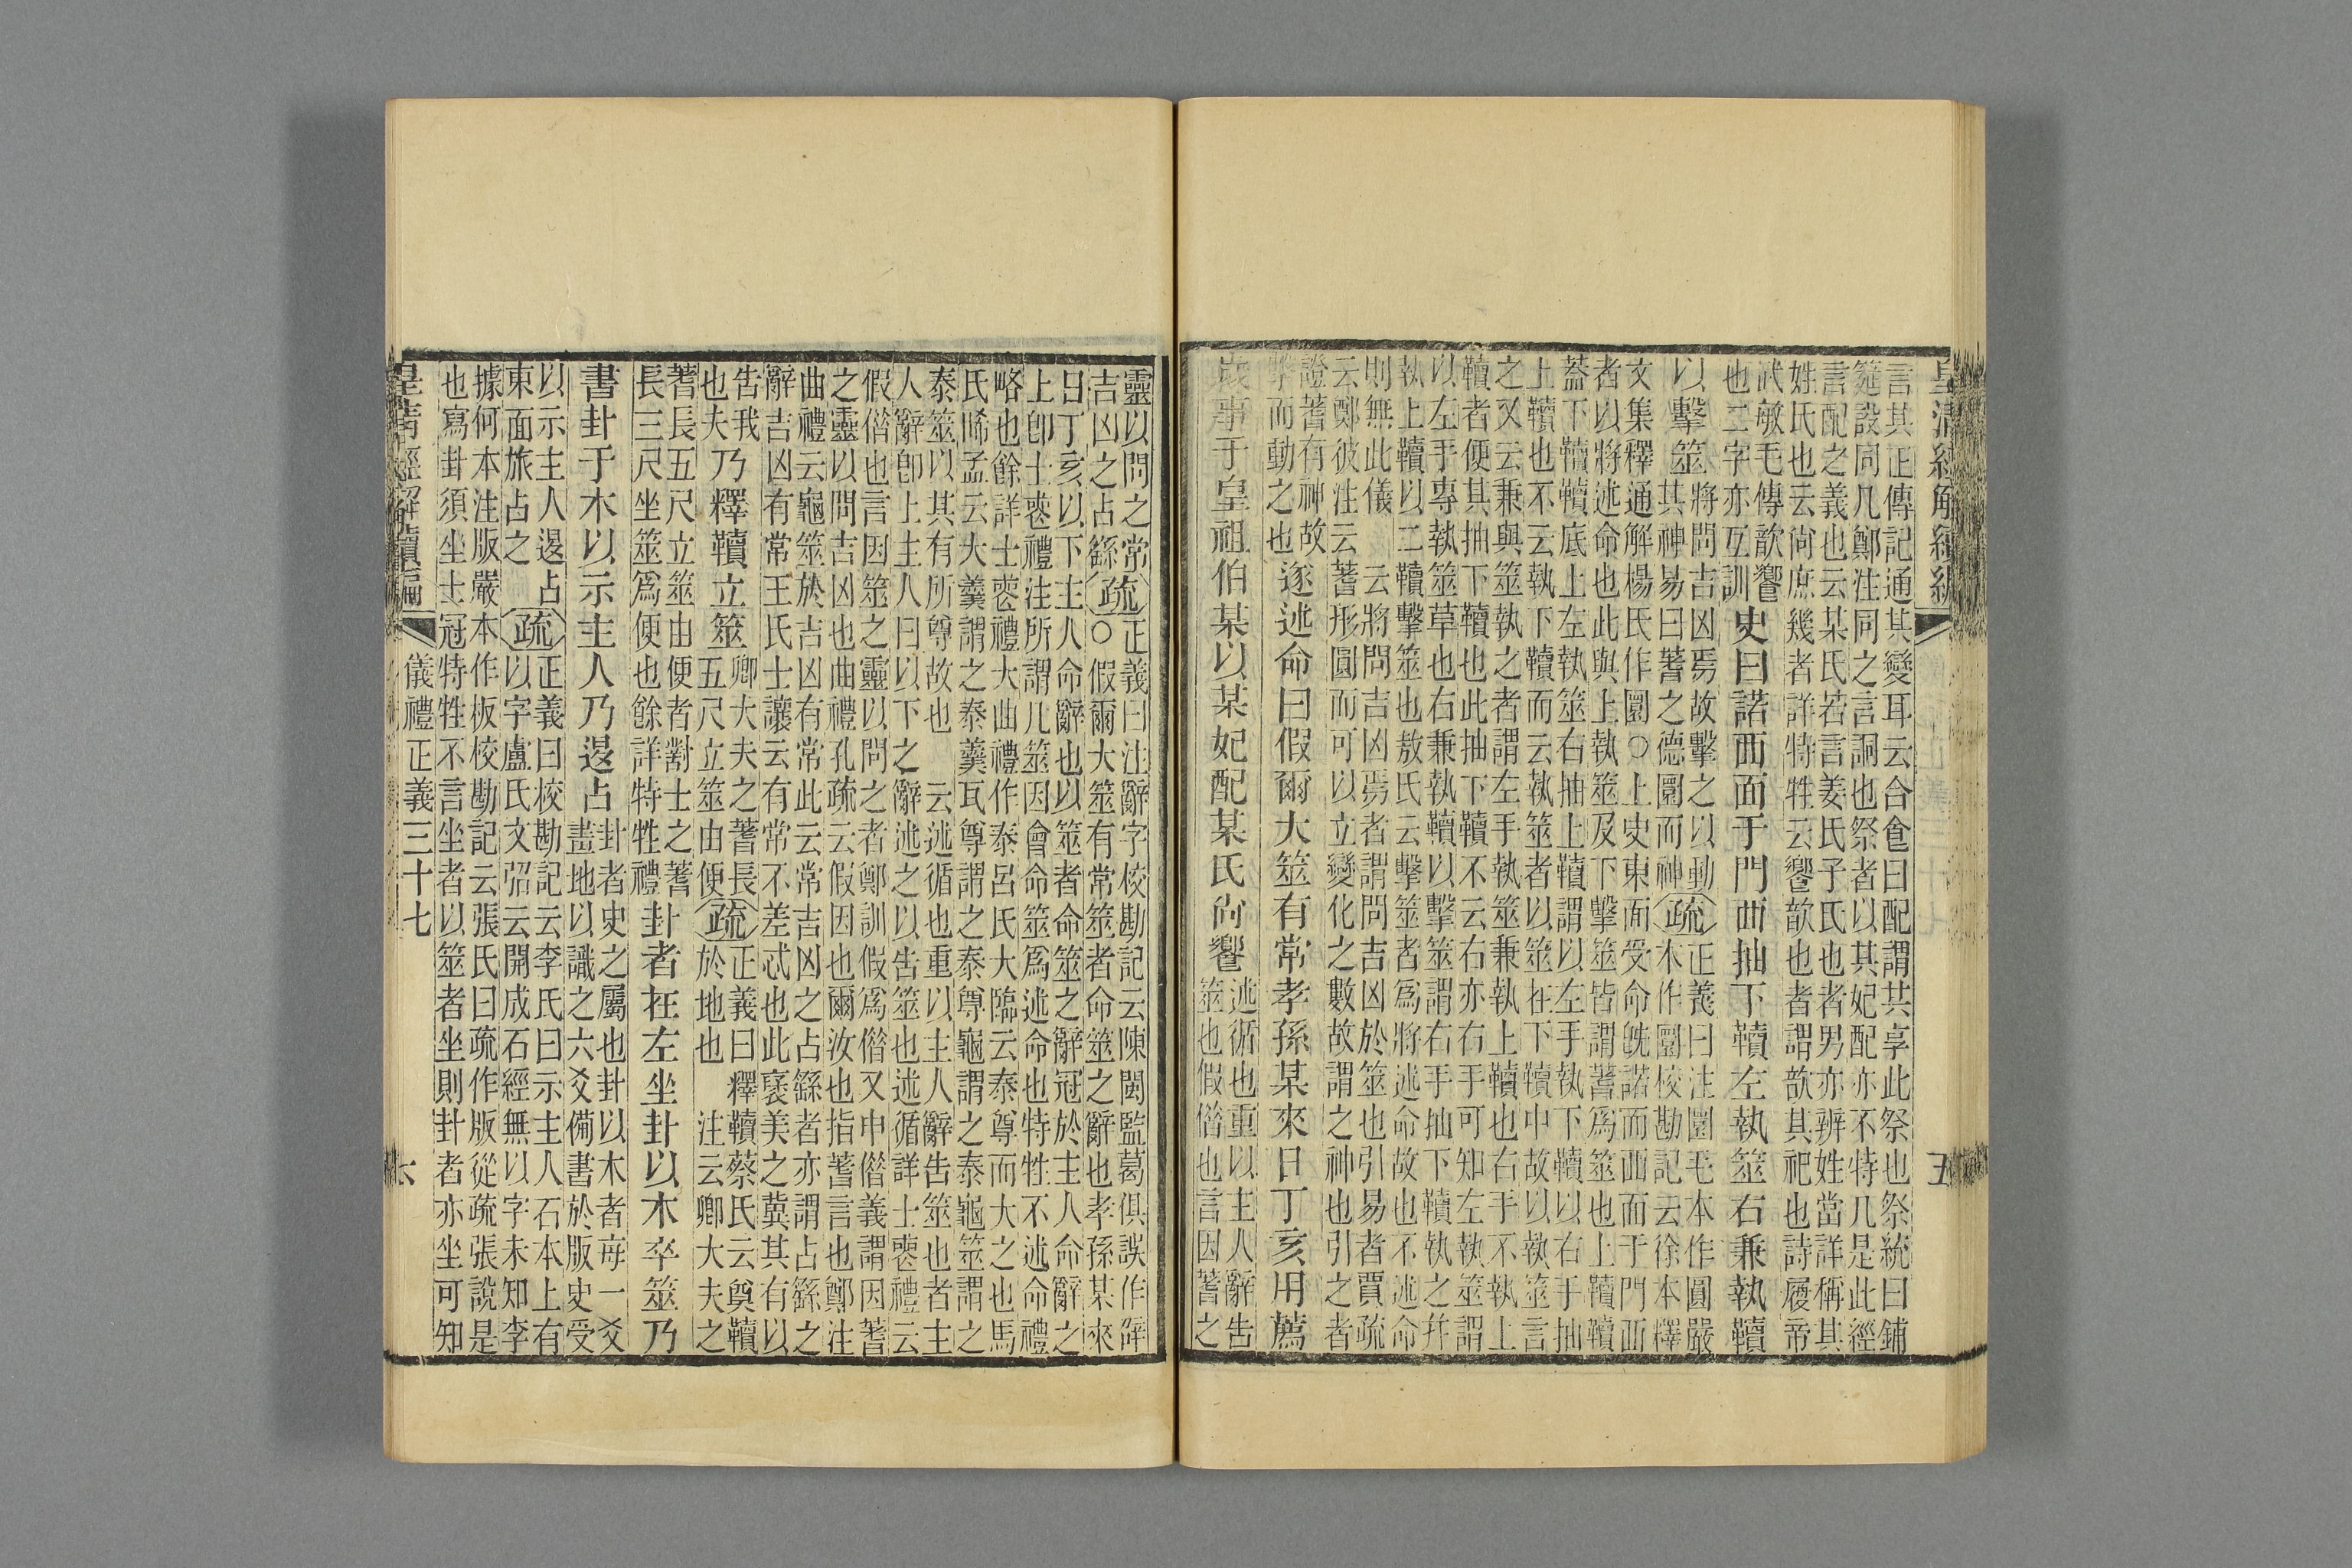 皇清經解續編
五
言其正傳記通其變耳云合食曰配謂共享此祭也祭統曰鋪
筵設同几鄭注同之言詷也祭者以其妃配亦不特几是此經
言配之義也云某氏若言姜氏子氏也者男亦辨姓當詳稱其
姓氏也云尚庶幾者詳特牲云饗歆也者謂歆其祀也詩履帝
武敏毛傳歆饗
也二字亦互訓
史曰諾西面于門西抽下韇左執筮右兼執韇
以擊筮
將問吉凶焉故擊之以動
其神易曰蓍之德圜而神
疏
正義曰注圜毛本作圓嚴
本作圜校勘記云徐本釋
文集釋通解楊氏作圜○上史東面受命既諾而西面于門西
者以將述命也此與上執筮及下擊筮皆謂蓍為筮也上韇韇
蓋下韇韇底上左執筮右抽上韇謂以左手執下韇以右手抽
上韇也不云執下韇而云執筮者以筮在下韇中故以執筮言
之又云兼與筮執之者謂左手執筮兼執上韇也右手不執上
韇者便其抽下韇也此抽下韇不云右亦右手可知左執筮謂
以左手專執筮草也右兼執韇以擊筮謂右手抽下韇執之并
執上韇以二韇擊筮也敖氏云擊筮者為將述命故也不述命
則無此儀　云將問吉凶焉者謂問吉凶於筮也引易者賈疏
云鄭彼注云蓍形圓而可以立變化之數故謂之神也引之者
證蓍有神故
擊而動之也
遂述命曰假爾大筮有常孝孫某來日丁亥用薦
歲事于皇祖伯某以某妃配某氏尚饗
述循也重以主人辭告
筮也假借也言因蓍之
靈以問之常
吉凶之占繇
疏
正義曰注辭字校勘記云陳閩監葛俱誤作辟
○假爾大筮有常筮者命筮之辭也孝孫某來
日丁亥以下主人命辭也以筮者命筮之辭冠於主人命辭之
上卽士喪禮注所謂凡筮因會命筮為述命也特牲不述命禮
略也餘詳士喪禮大曲禮作泰呂氏大臨云泰尊而大之也馬
氏晞孟云大羹謂之泰羹瓦尊謂之泰尊龜謂之泰龜筮謂之
泰筮以其有所尊故也　云述循也重以主人辭告筮也者主
人辭卽上主人曰以下之辭述之以告筮也述循詳士喪禮云
假借也言因筮之靈以問之者鄭訓假為借又申借義謂因蓍
之靈以問吉凶也曲禮孔疏云假因也爾汝也指蓍言也鄭注
曲禮云龜筮於吉凶有常此云常吉凶之占繇者亦謂占繇之
辭吉凶有常王氏士讓云有常不差忒也此褒美之冀其有以
告我
也夫
乃釋韇立筮
卿大夫之蓍長
五尺立筮由便
疏
正義曰　釋韇蔡氏云奠韇
於地也　注云卿大夫之
蓍長五尺立筮由便者對士之蓍
長三尺坐筮為便也餘詳特牲禮
卦者在左坐卦以木卒筮乃
書卦于木以示主人乃退占
卦者史之屬也卦以木者每一爻
畫地以識之六爻備書於版史受
以示主人退占
東面旅占之
疏
正義曰校勘記云李氏曰示主人石本上有
以字盧氏文弨云開成石經無以字未知李
據何本注版嚴本作板校勘記云張氏曰疏作版從疏張說是
也寫卦須坐士冠特牲不言坐者以筮者坐則卦者亦坐可知
皇清經解續編
儀禮正義三十七
六